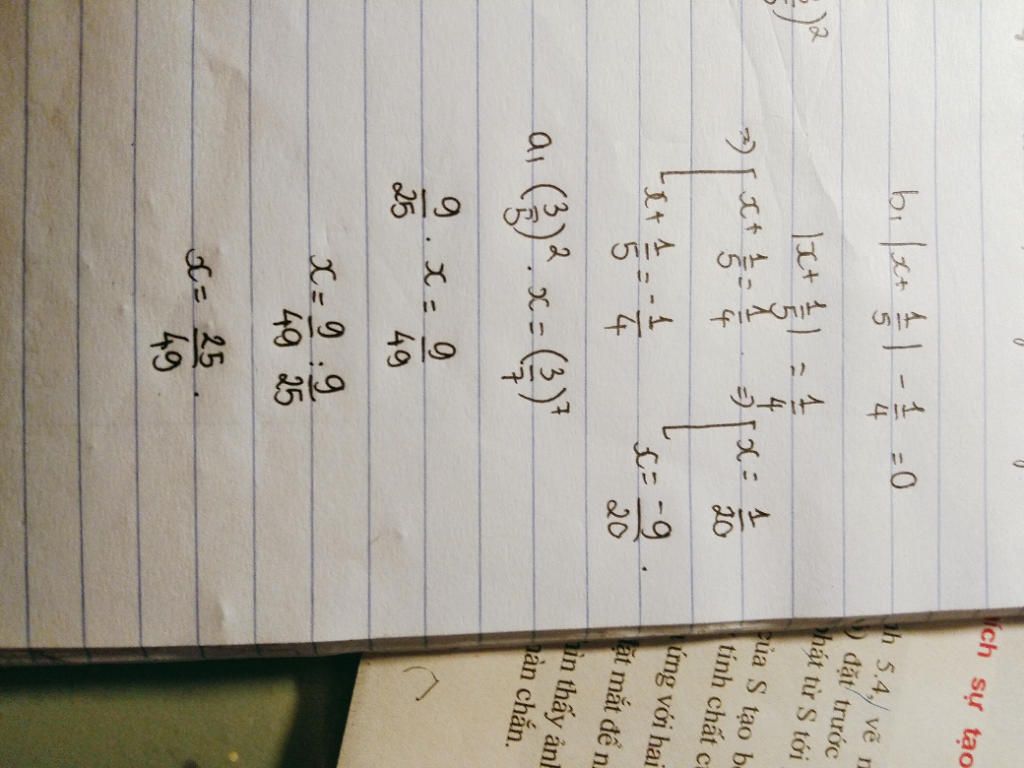 )²
b, |x + 1/5| - 1/4 = 0
|x + 1/5| = 1/4
=> [ x + 1/5 = 1/4 . => [ x = 1/20
x + 1/5 = -1/4 x = -9/20 .
a, (3/5)² . x = (3/7)⁷
9/25 . x = 9/49
x = 9/49 : 9/25
x = 25/49 .
ích sự tạo
nh 5.4, vẽ
đặt trước
phát từ S tới
của S tạo
tính chất
ứng với hai
đặt mắt để
hìn thấy ảnh
màn chắn.